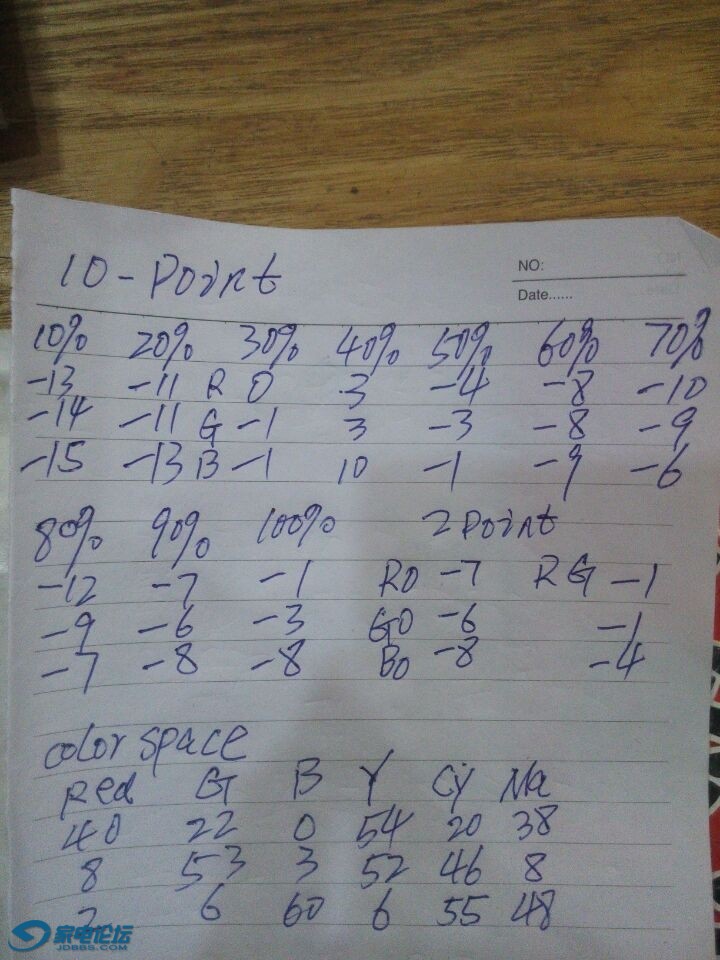 NO:
10-Point
Date......
10% 20% 30% 40% 50% 60% 70%
-13 -11 R 0 3 -4 -8 -10
-14 -11 G -1 3 -3 -8 -9
-15 -13 B -1 10 -1 -9 -6
80% 90% 100% 2 Point
-12 -7 -1 RO -7 RG -1
-9 -6 -3 GO -6 -1
-7 -8 -8 BO -8 -4
color space
Red G B Y Cy Ma
40 22 0 54 20 38
8 53 3 52 46 8
2 6 60 6 55 48
家电论坛
JDBBS.COM